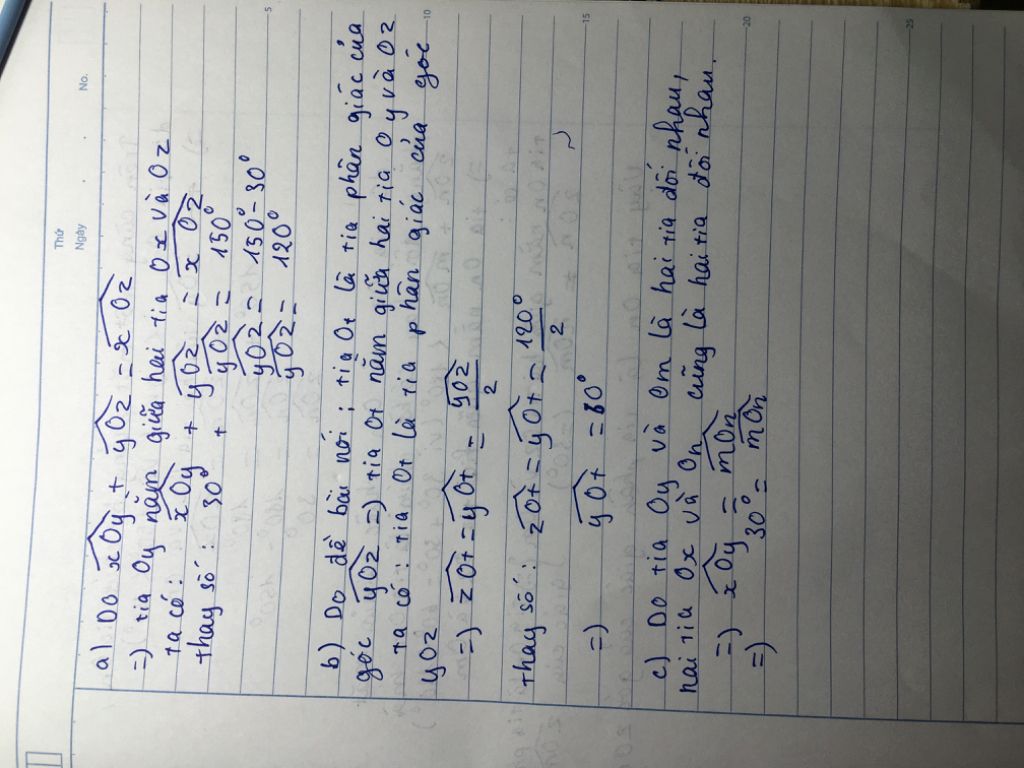 Thứ
Ngày
No.
5
10
15
20
25
a) Do xOy + yOz = xOz
=) tia Oy nằm giữa hai tia Ox và Oz
ta có : xOy + yOz = xOz
thay số : 30° + yOz = 150°
yOz = 150° - 30°
yOz = 120°
b) Do đề bài nói : tia Ot là tia phân giác của
góc yOz =) tia Ot nằm giữa hai tia Oy và Oz
ta có : tia Ot là tia phân giác của góc
yOz
=) zOt = yOt = yOz / 2
thay số : zOt = yOt = 120° / 2
=) yOt = 60°
c) Do tia Oy và Om là hai tia đối nhau,
hai tia Ox và On cũng là hai tia đối nhau.
=) xOy = mOn
=) 30° = mOn